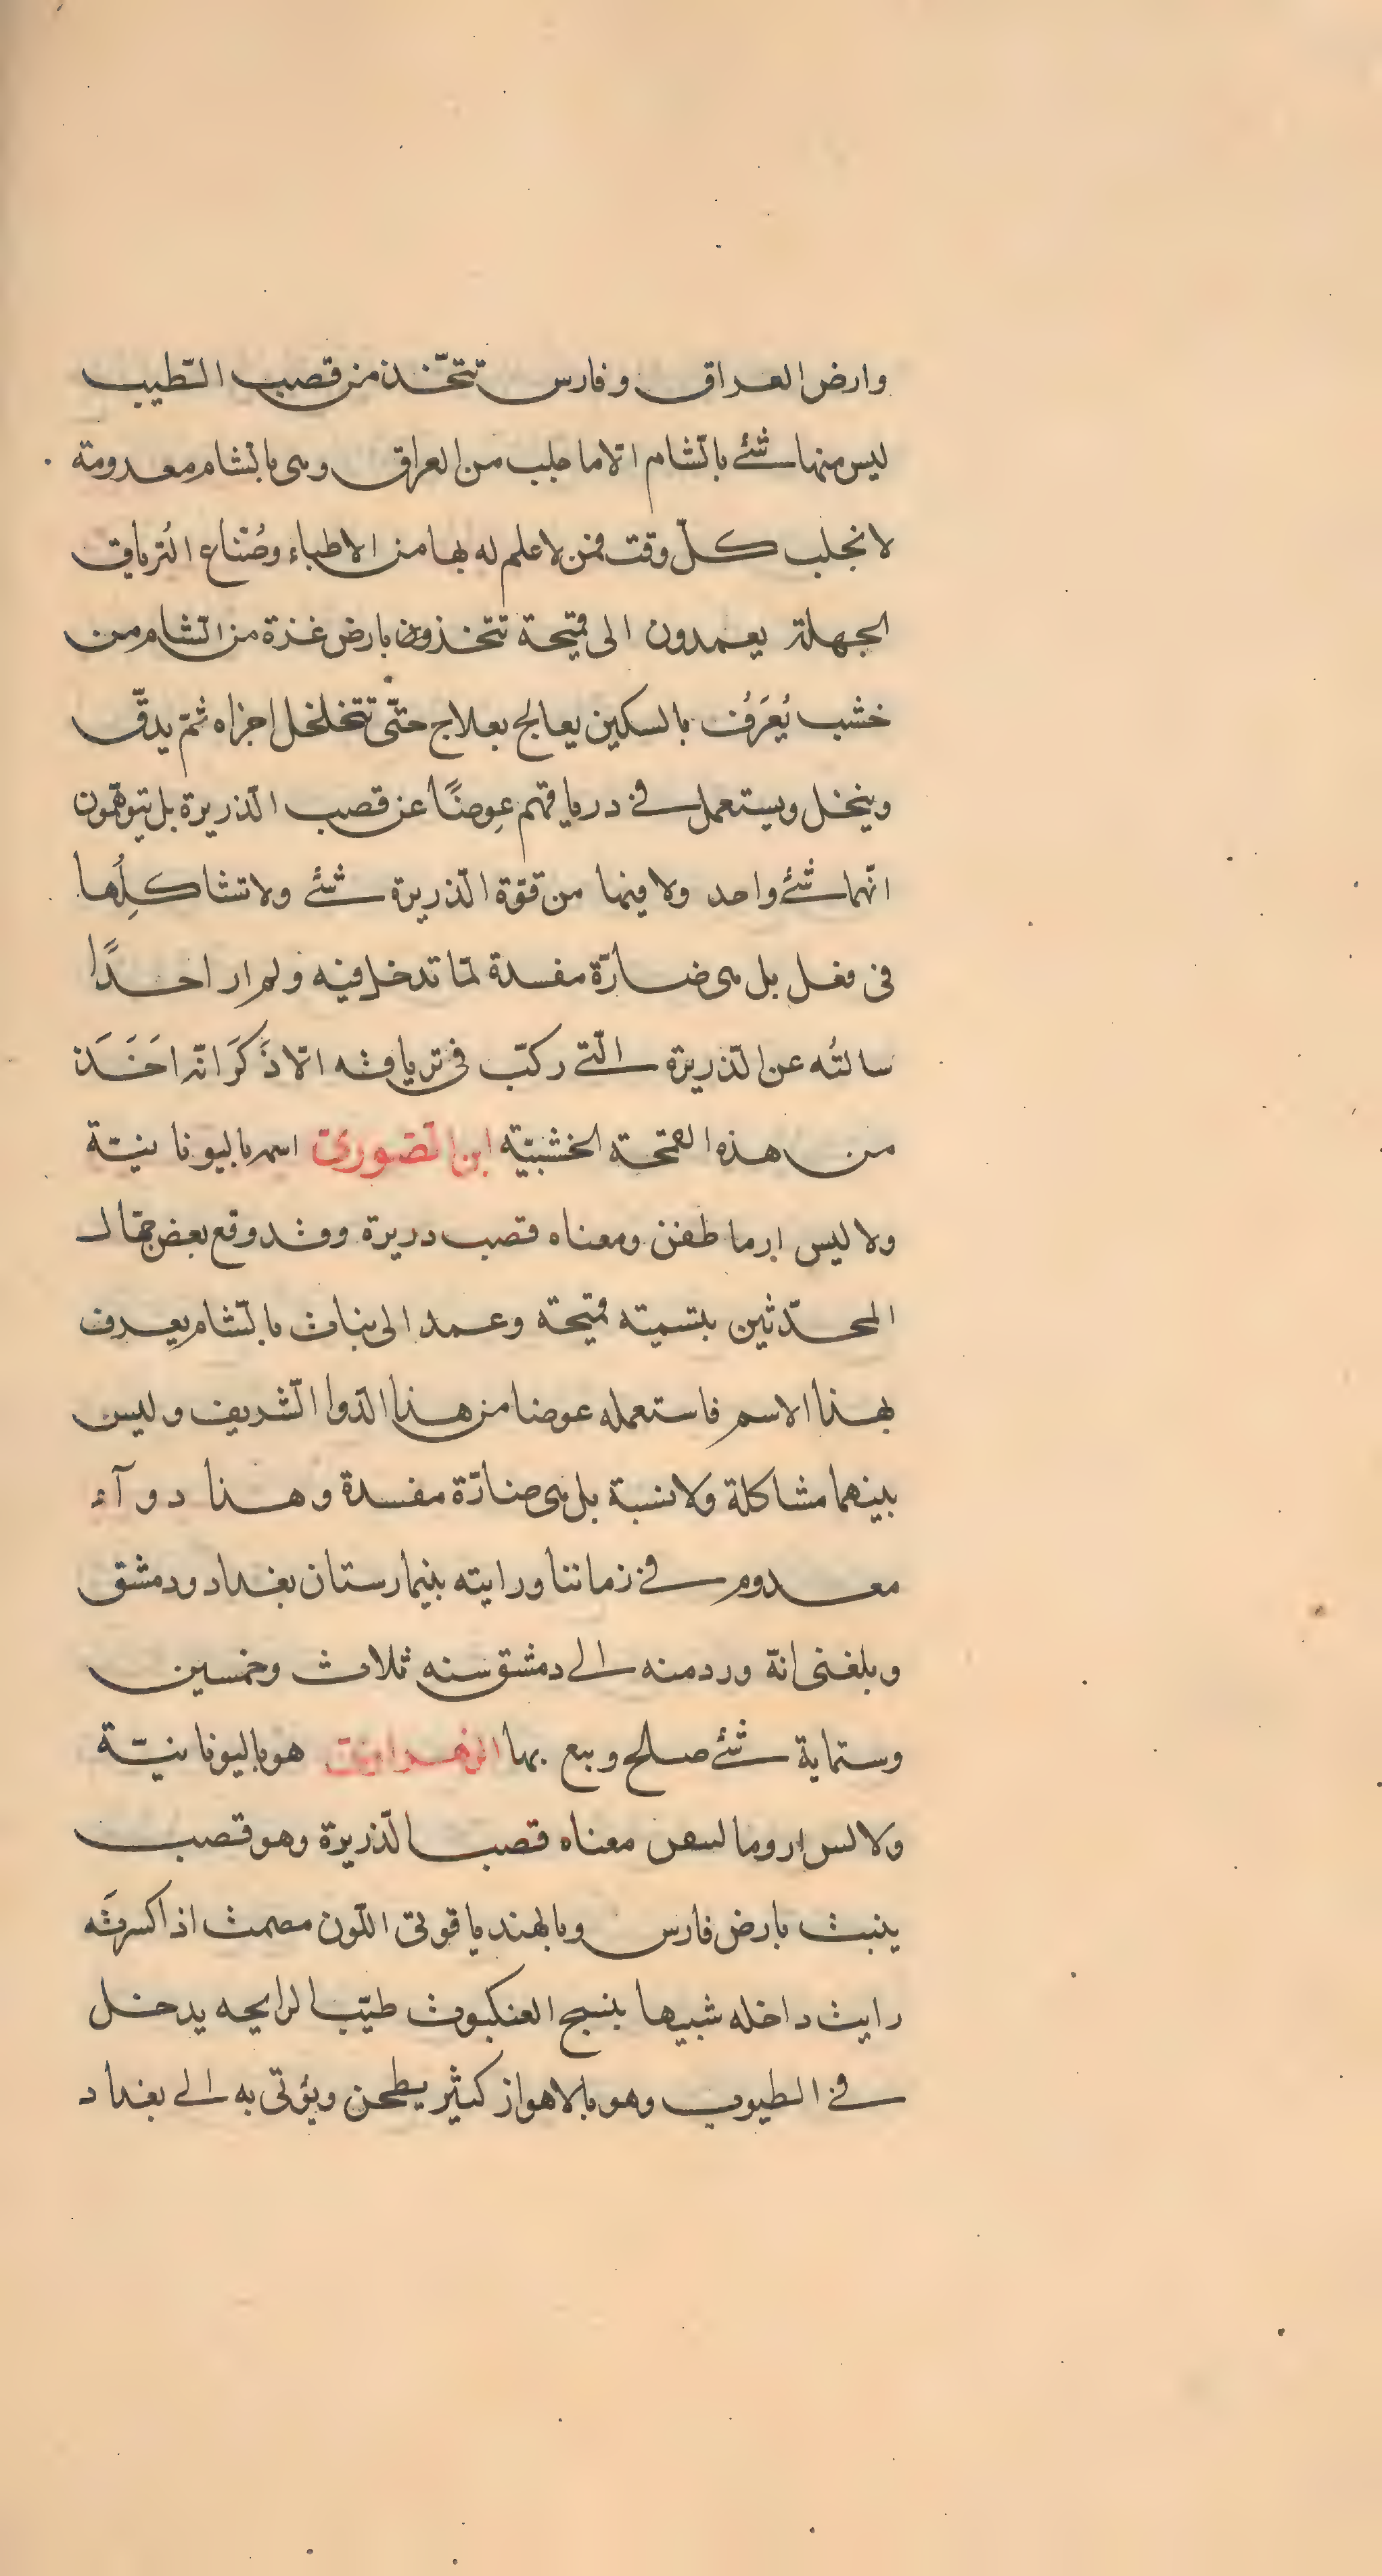 وارض العراق وفارس تتخّذ من قصب الطّيب
ليس منها شئ بالشّام الّا ما جلب من العراق وهى بالشام معدومة
لا تجلب كلّ وقت فمن لا علم له بها من الاطباء وصُنّاع التُرياق
الجهلة يعمدون الى قميحة تتخذون بارض غزة من الشّام من
خشب يُعرَفُ بالسكين يعالج بعلاج حتّى تتخلخل اجزاه ثمّ يدقّ
وينخل ويستعمل في درياقهم عِوضًا عن قصب الذّريرة بل يتوهّمون
انّهما شئ واحد ولا فيها من قوّة الذّريرة شئ ولا تشاكلُها
فى فعل بل هى ضارّة مفسدة لمّا تدخل فيه ولم ار احدًا
سالتُه عن الذّريرة الّتي ركبّ في ترياقه الّا ذَكَرَ انّه اَخَذَ
من هذه القمحة الخشبيّة ابن الصّورىّ اسمر باليونانيّة
ولا ليس ارما طفنن ومعناه قصب دريرة وقد وقع بعض جهّال
المحدّثين بتسميته قميحة وعمد الى نبات بالشّام يعرف
بهذا الاسم فاستعمله عوضا من هذا الدّوا الشّريف وليس
بينهما مشاكلة ولا نسبة بل هى ضارّة مفسدة وهذا دوآء
معدوم في زماننا ورايته ببيمارستان بغداد ودمشق
وبلغنى انّه ورد منه الى دمشق سنه ثلاث وخمسين
وستماية شئ صلح وبيع بها الزهراوىّ هو باليونانيّة
ولا لس اروما لسعں معناه قصب الذّريرة وهو قصب
ينبت بارض فارس وبالهند ياقوتى اللّون مصمت اذا كسرتَه
رايت داخله شبيها بنسج العنكبوت طيّب الرايحه يدخل
في الطيوب وهو بالاهواز كثير يطحن ويؤتى به الى بغداد